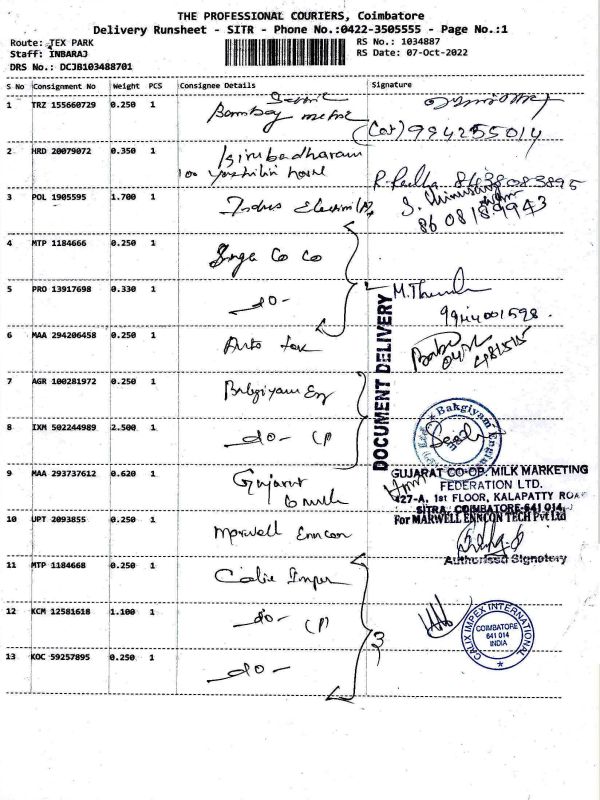 THE PROFESSIONAL COURIERS, Coimbatore
Delivery Runsheet - SITR - Phone No.:0422-3505555 - Page No.:1
Route: TEX PARK
Staff: INBARAJ
DRS No.: DCJB103488701
RS No.: 1034887
RS Date: 07-Oct-2022
S No Consignment No Weight PCS Consignee Details Signature
1 TRZ 155660729 0.250 1 Bombay
(Car) 994255014
2 HRD 20079072 0.350 1
100 house
8438083895
3 POL 1905595 1.700 1 Indus
8608189943
4 MTP 1184666 0.250 1 Co Co
5 PRO 13917698 0.330 1 -do-
M.
9944001598.
6 MAA 294206458 0.250 1 Auto
Babu
DOCUMENT DELIVERY
7 AGR 100281972 0.250 1 Bakgiyam Eng
8 IXM 502244989 2.500 1 -do- (P)
Bakgiyam Engin
9 MAA 293737612 0.620 1 Gujarat
GUJARAT CO-OP. MILK MARKETING
FEDERATION LTD.
427-A, 1st FLOOR, KALAPATTY ROA
SITRA, COIMBATORE-641 014
10 UPT 2093855 0.250 1 Marwell Enncon
For MARWELL ENNCON TECH Pvt Ltd
Authorised Signatory
11 MTP 1184668 0.250 1 Calix Impex
12 KCM 12581618 1.100 1 -do- (P)
3
CALIX IMPEX INTERNATIONAL
COIMBATORE
641 014
INDIA
13 KOC 59257895 0.250 1 -do-